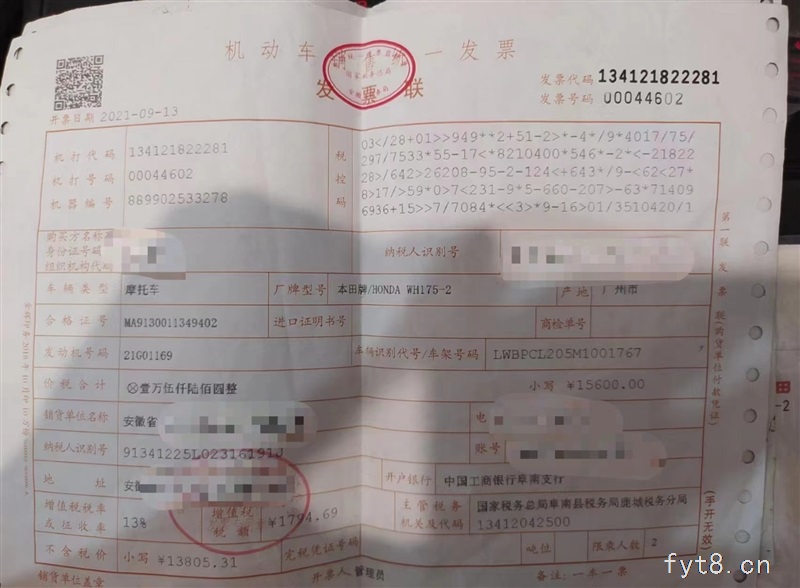 机动车 一发票
发票联
发票代码 134121822281
发票号码 00044602
开票日期 2021-09-13
机打代码 134121822281
机打号码 00044602
机器编号 889902533278
税控码
03</28+01>>949**2+51-2>*-4*/9*4017/75/
297/7533*55-17<*8210400*546*-2*<-21822
28>/642>26208-95-2-124<+643*/9-<62<27*
8>17/>59*0>7<231-9*5-660-207>-63*71409
6936+15>>7/7084*<<3>*9-16>01/3510420/1
购买方名称
身份证号码
组织机构代码
纳税人识别号
车辆类型 摩托车 厂牌型号 本田牌/HONDA WH175-2 产地 广州市
合格证号 MA9130011349402 进口证明书号 商检单号
发动机号码 21G01169 车辆识别代号/车架号码 LWBPCL205M1001767
价税合计 ⊗壹万伍仟陆佰圆整 小写 ¥15600.00
销货单位名称 安徽省 电
纳税人识别号 91341225L02316191J 账号
地址 安徽 开户银行 中国工商银行阜南支行
增值税税率或征收率 13% 增值税税额 ¥1794.69 主管税务机关及代码 国家税务总局阜南县税务局鹿城税务分局 13412042500
不含税价 小写 ¥13805.31 完税凭证号码 吨位 限乘人数 2
销货单位盖章 开票人 管理员 备注:一车一票
第一联 发票联(购货单位付款凭证)
(手开无效)
-2
fyt8.cn